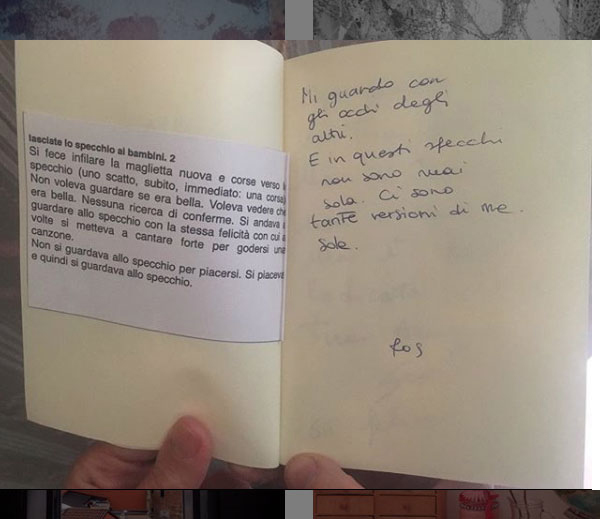 lasciate lo specchio ai bambini. 2
Si fece infilare la maglietta nuova e corse verso lo
specchio (uno scatto, subito, immediato: una corsa).
Non voleva guardare se era bella. Voleva vedere che
era bella. Nessuna ricerca di conferme. Si andava a
guardare allo specchio con la stessa felicità con cui a
volte si metteva a cantare forte per godersi una
canzone.
Non si guardava allo specchio per piacersi. Si piaceva
e quindi si guardava allo specchio.
Mi guardo con
gli occhi degli
altri.
E in questi specchi
non sono mai
sola. Ci sono
tante versioni di me.
Sole.
Ros